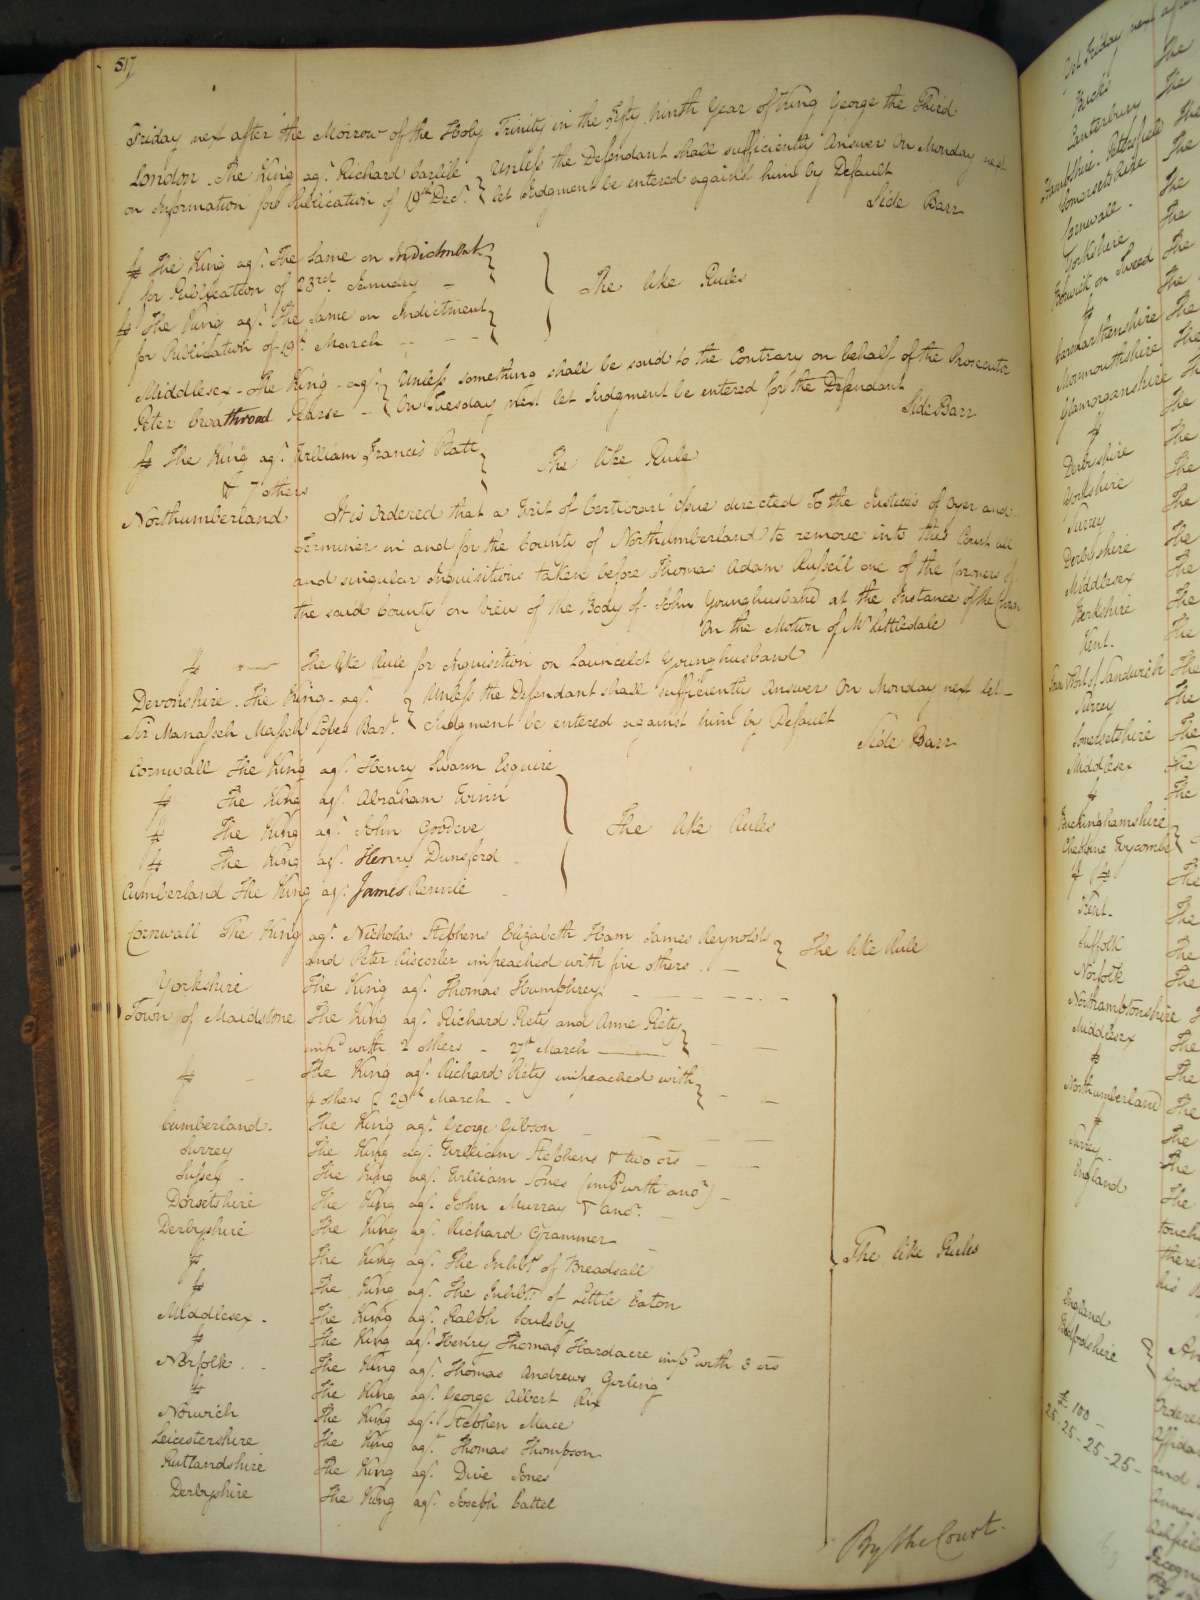 517
Friday next after the Morrow of the Holy Trinity in the Fifty Ninth Year of King George the Third
London. The King agt. Richard Carlile } Unless the Defendant shall sufficiently Answer On Monday next
on Information for Publication of 19th Decr. } let Judgment be entered against him by Default
Side Barr
The King agt. The Same on Indictment
for Publication of 23rd. January
The like Rules
The King agt. The Same on Indictment
for Publication of 19th. March
Middlesex - The King - agt. } Unless something shall be said to the Contrary on behalf of the Prosecutor
Peter Pearse } On Tuesday next let Judgment be entered for the Defendant
Side Barr
The King agt. William Francis Platt
& 7 others
The like Rule
Northumberland It is Ordered that a Writ of Certiorari issue directed To the Justices of Oyer and
Terminer in and for the County of Northumberland to remove into this Court all
and singular Inquisitions taken before Thomas Adam Russell one of the Coroners of
the said County on View of the Body of John Younghusband at the Instance of the Crown
On the Motion of Mr Littledale
The like Rule for Inquisition on Launcelot Younghusband
Devonshire. The King - agt. } Unless the Defendant shall sufficiently Answer On Monday next let
Sir Manasseh Masseh Lopes Bart. } Judgment be entered against him by Default
Side Barr
Cornwall The King agt. Henry Swann Esquire
The King agt. Abraham Winn
The King agt. John Goodeve
The like Rules
The King agt. Henry Dunsford
Cumberland The King agt. James Rennie
Cornwall The King agt. Nicholas Stephens Elizabeth Ham James Reynolds
and Peter Riscorler impeached with five others
The like Rule
Yorkshire The King agt. Thomas Humphrey
Town of Maidstone The King agt. Richard Rety and Anne Rety
impd. with 2 others - 27th March
The King agt. Richard Rety impeached with
4 others 29th March
Cumberland. The King agt. George Gibson
Surrey The King agt. William Stephens & two ors
Sussex The King agt. William Jones (impd with anor.)
Dorsetshire The King agt. John Murray & anor.
Derbyshire The King agt. Richard Grammer
The like Rules
The King agt. The Inhabts. of Breadsall
The King agt. The Inhabts. of Little Eaton
Middlesex. The King agt. Ralph Soulsby
The King agt. Henry Thomas Hardacre impd with 3 ors
Norfolk. The King agt. Thomas Andrews Girling
The King agt. George Albert Rix
Norwich The King agt. Stephen Mace
Leicestershire The King agt. Thomas Thompson
Rutlandshire The King agt. Dive Jones
Derbyshire The King agt. Joseph Cattel
By the Court.
Bucks The
Canterbury The
Somersetshire The
Cornwall. The
Yorkshire The
Berwick on Tweed The
Carmarthenshire The
Monmouthshire The
Glamorganshire The
Derbyshire The
Yorkshire The
Surrey The
Derbyshire The
Middlesex The
Berkshire The
Kent. The
Surrey The
Somersetshire The
Middlesex The
The
Buckinghamshire
Chepping Wycombe
Kent. The
Suffolk The
Norfolk The
Northamptonshire
Middlesex The
Northumberland The
Surrey. The
England The
England
£ 100 -
25-25-25-25-